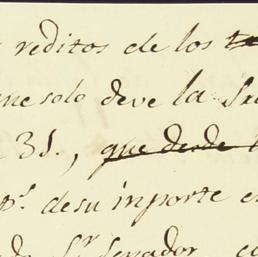 reditos de los
ne solo deve la
31., que desde
p.s de su inporte e
Sr Senador, co